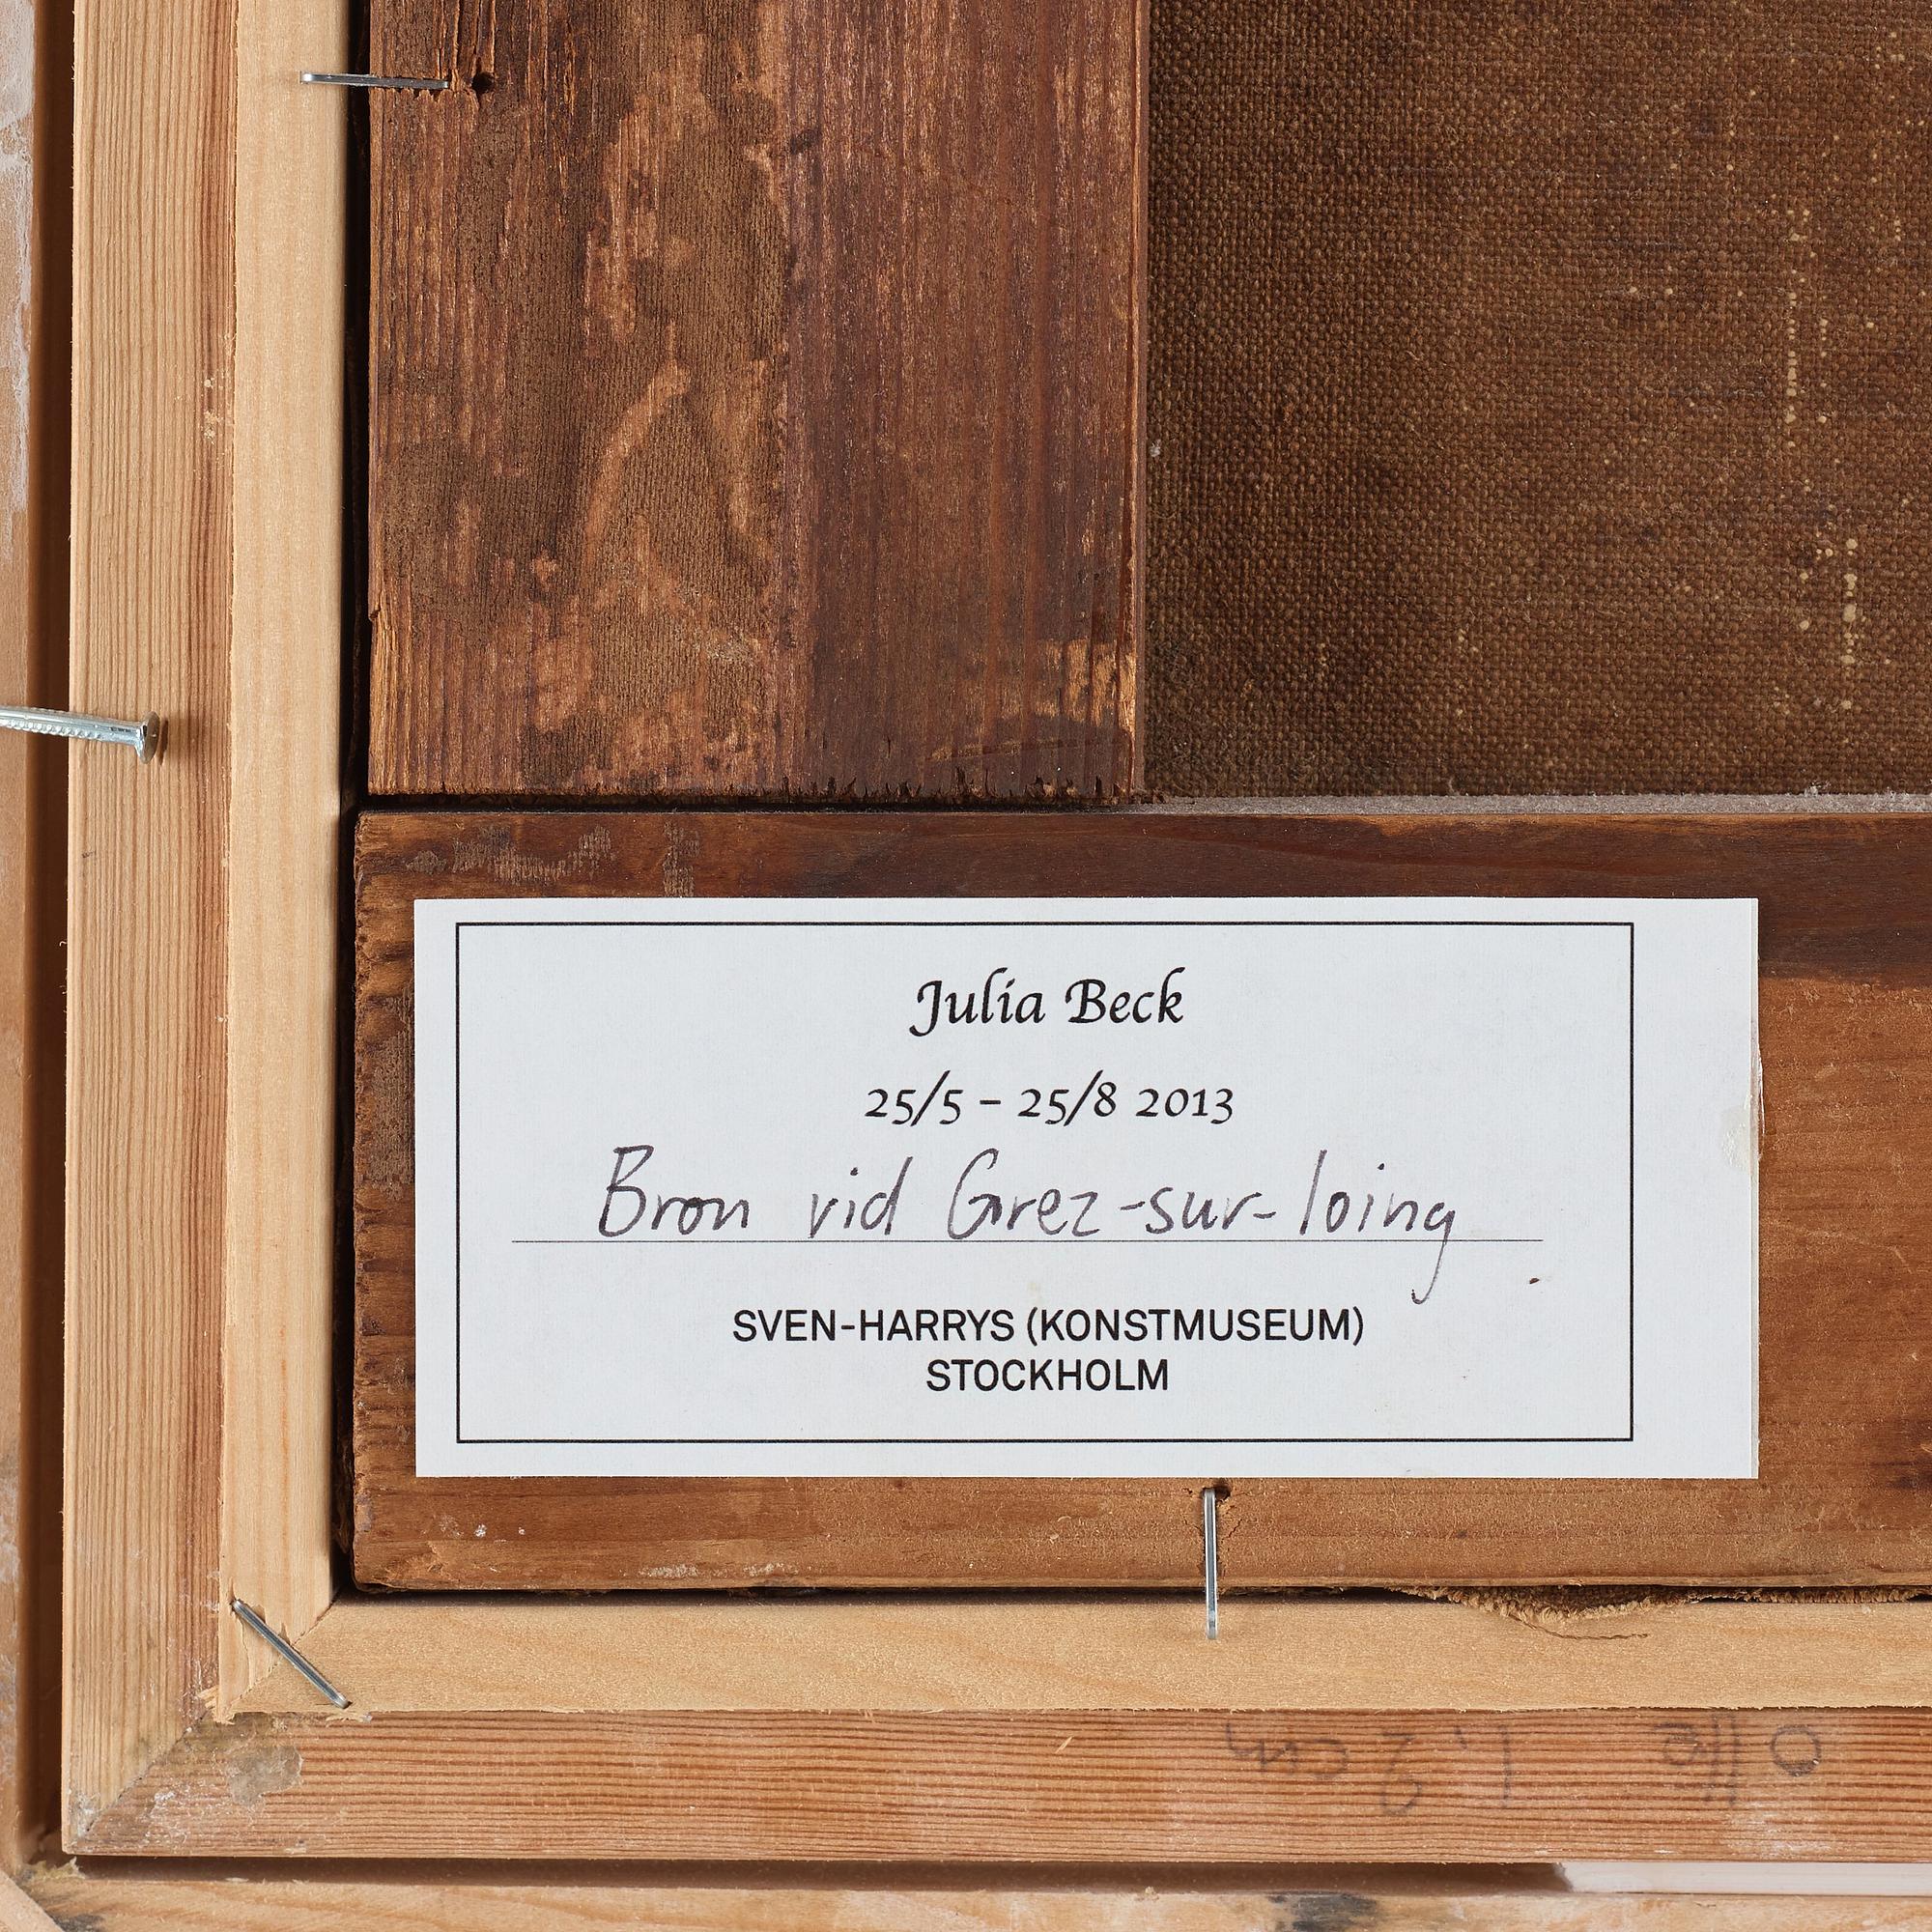 Julia Beck
25/5 – 25/8 2013
Bron vid Grez-sur-loing
SVEN-HARRYS (KONSTMUSEUM)
STOCKHOLM